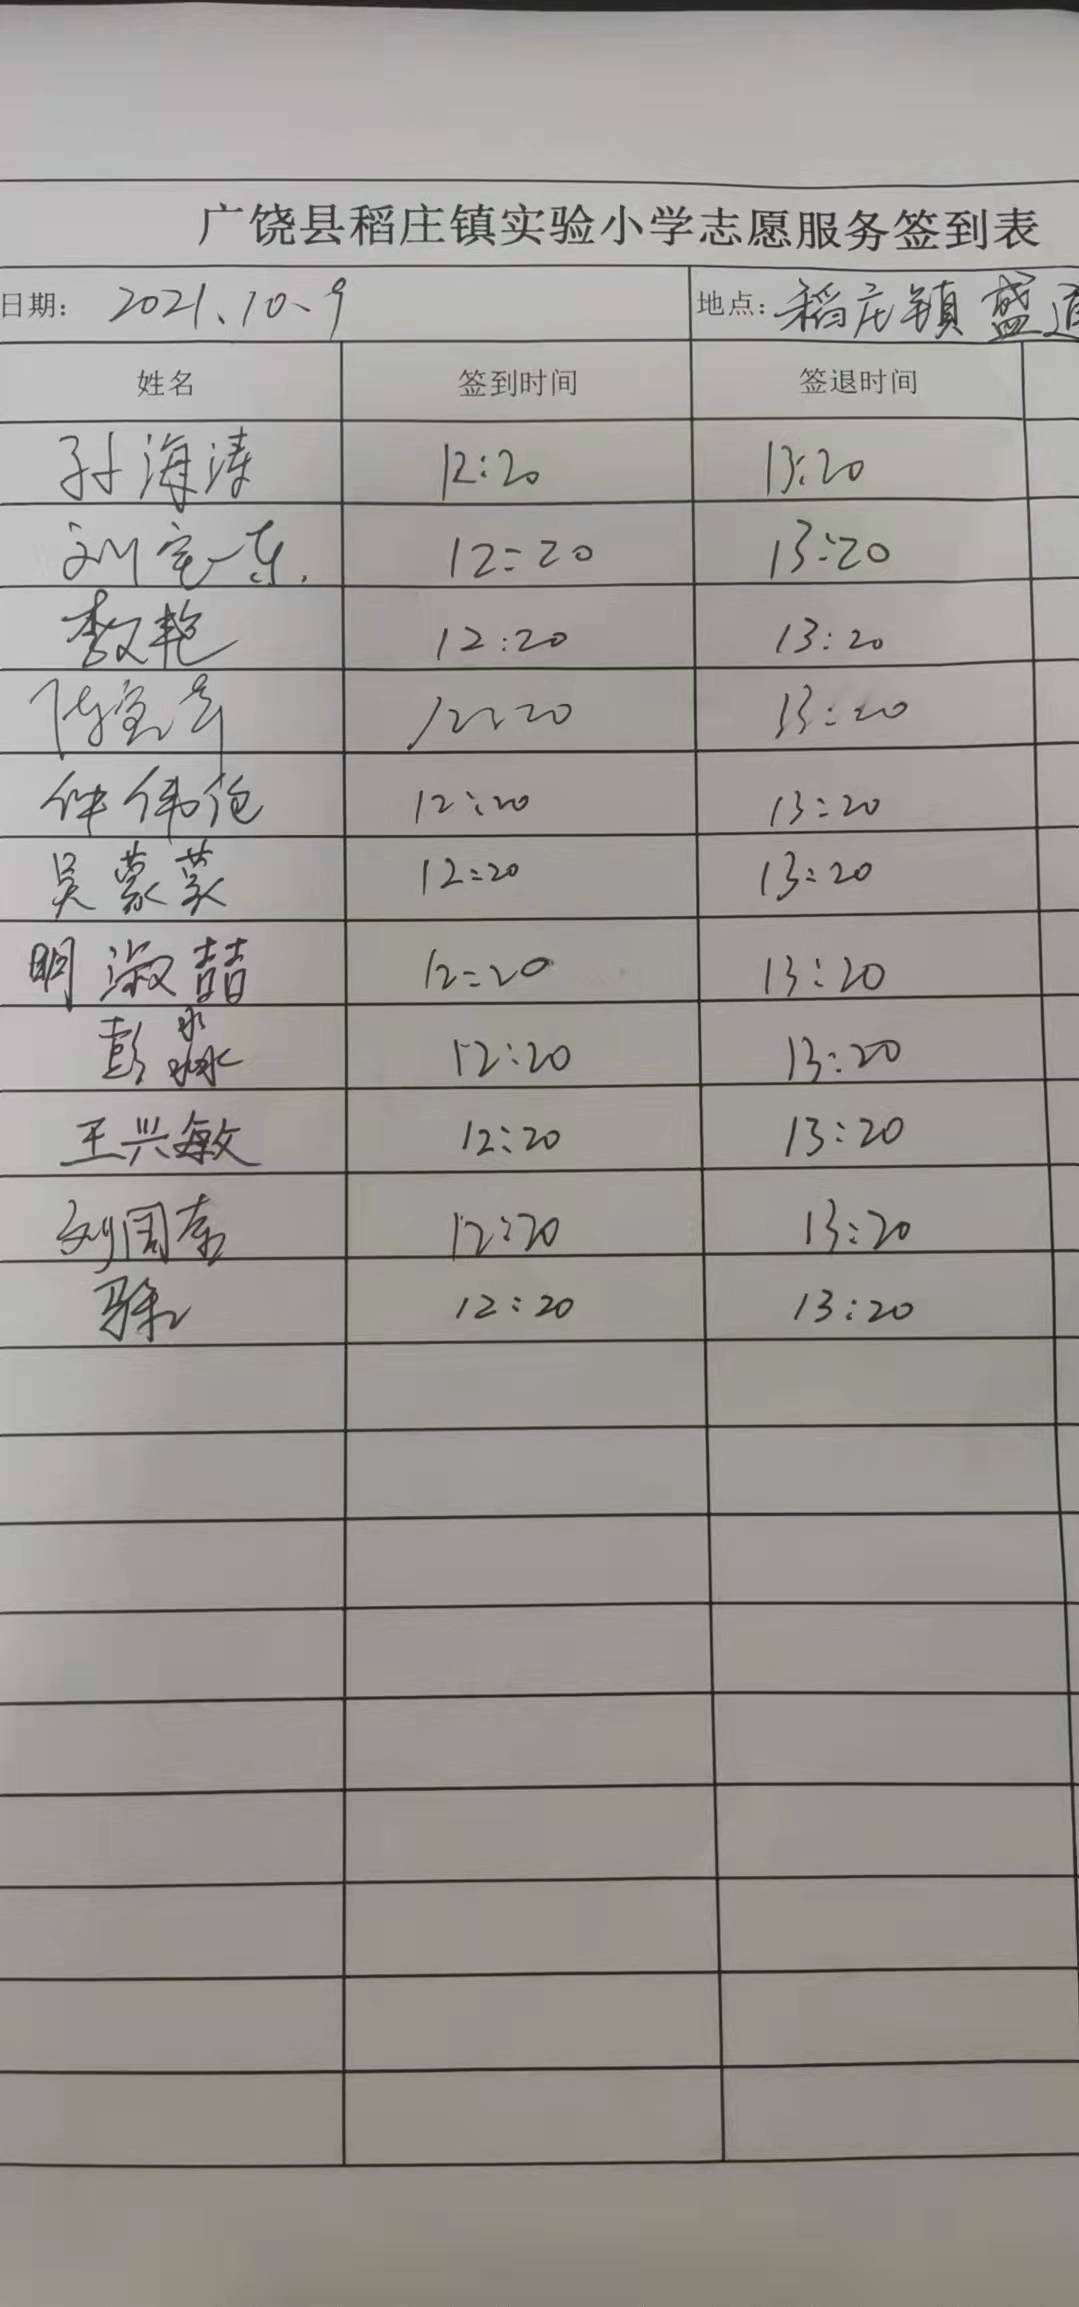 广饶县稻庄镇实验小学志愿服务签到表
日期： 2021.10.9 地点：稻庄镇盛
姓名 签到时间 签退时间
孙海涛 12:20 13:20
刘宝东 12:20 13:20
李文艳 12:20 13:20
12:20 13:20
仲伟 12:20 13:20
吴蒙蒙 12:20 13:20
明淑喆 12:20 13:20
彭淼 12:20 13:20
王兴敏 12:20 13:20
刘国 12:20 13:20
12:20 13:20